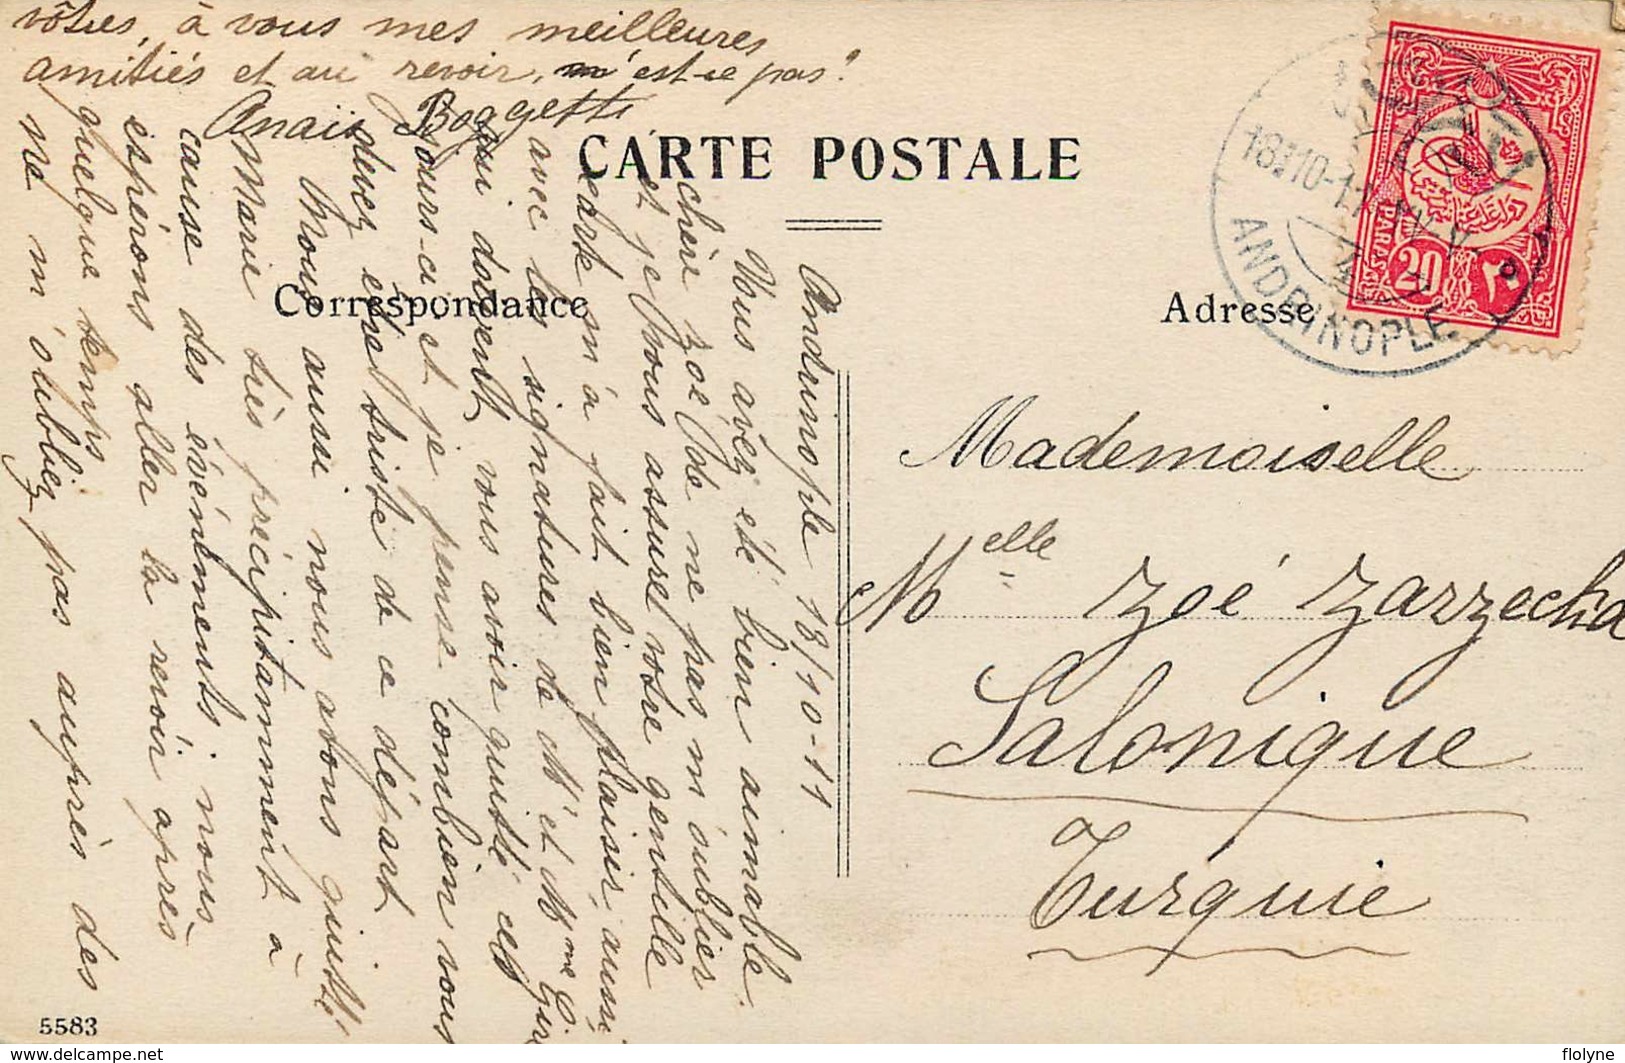 CARTE POSTALE
Correspondance
Adresse
Andrinople 18/10-11
Vous avez été bien aimable
chère Zoé de ne pas m'oublier
et je vous assure votre gentille
carte m'a fait bien plaisir, aussi
avec les signatures de M' et Mme
qui doivent vous avoir quitté ces
jours-ci et je pense combien vous
devez être triste de ce départ
Nous aussi nous avons quitté
Marie très précipitamment à
cause des événements, nous
espérons aller la revoir après
quelque temps
ne m'oubliez pas auprès des
vôtres, à vous mes meilleures
amitiés et au revoir, n'est-ce pas?
Anais Boggetti
Mademoiselle
Melle Zoé Zazzechia
Salonique
Turquie
ANDRINOPLE
20 PARAS ٢٠
5583
flolyne